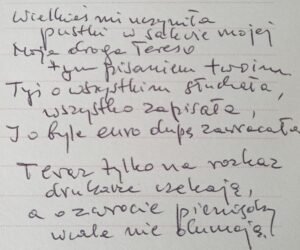 Wielkieś mi uczyniła
pustki w sakwie mojej
Moja droga Tereso
tym pisaniem twoim
Tyś o wszystkim słuchała,
wszystko zapisała,
I o byle euro dupę zawracała
Teraz tylko na rozkaz
drukarze czekają,
a o zwrocie pieniędzy
wcale nie dumają.